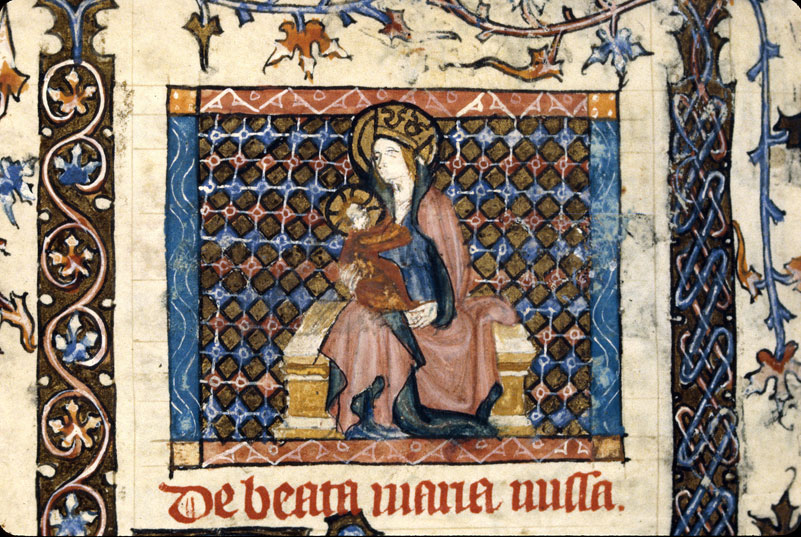 De beata maria missa.